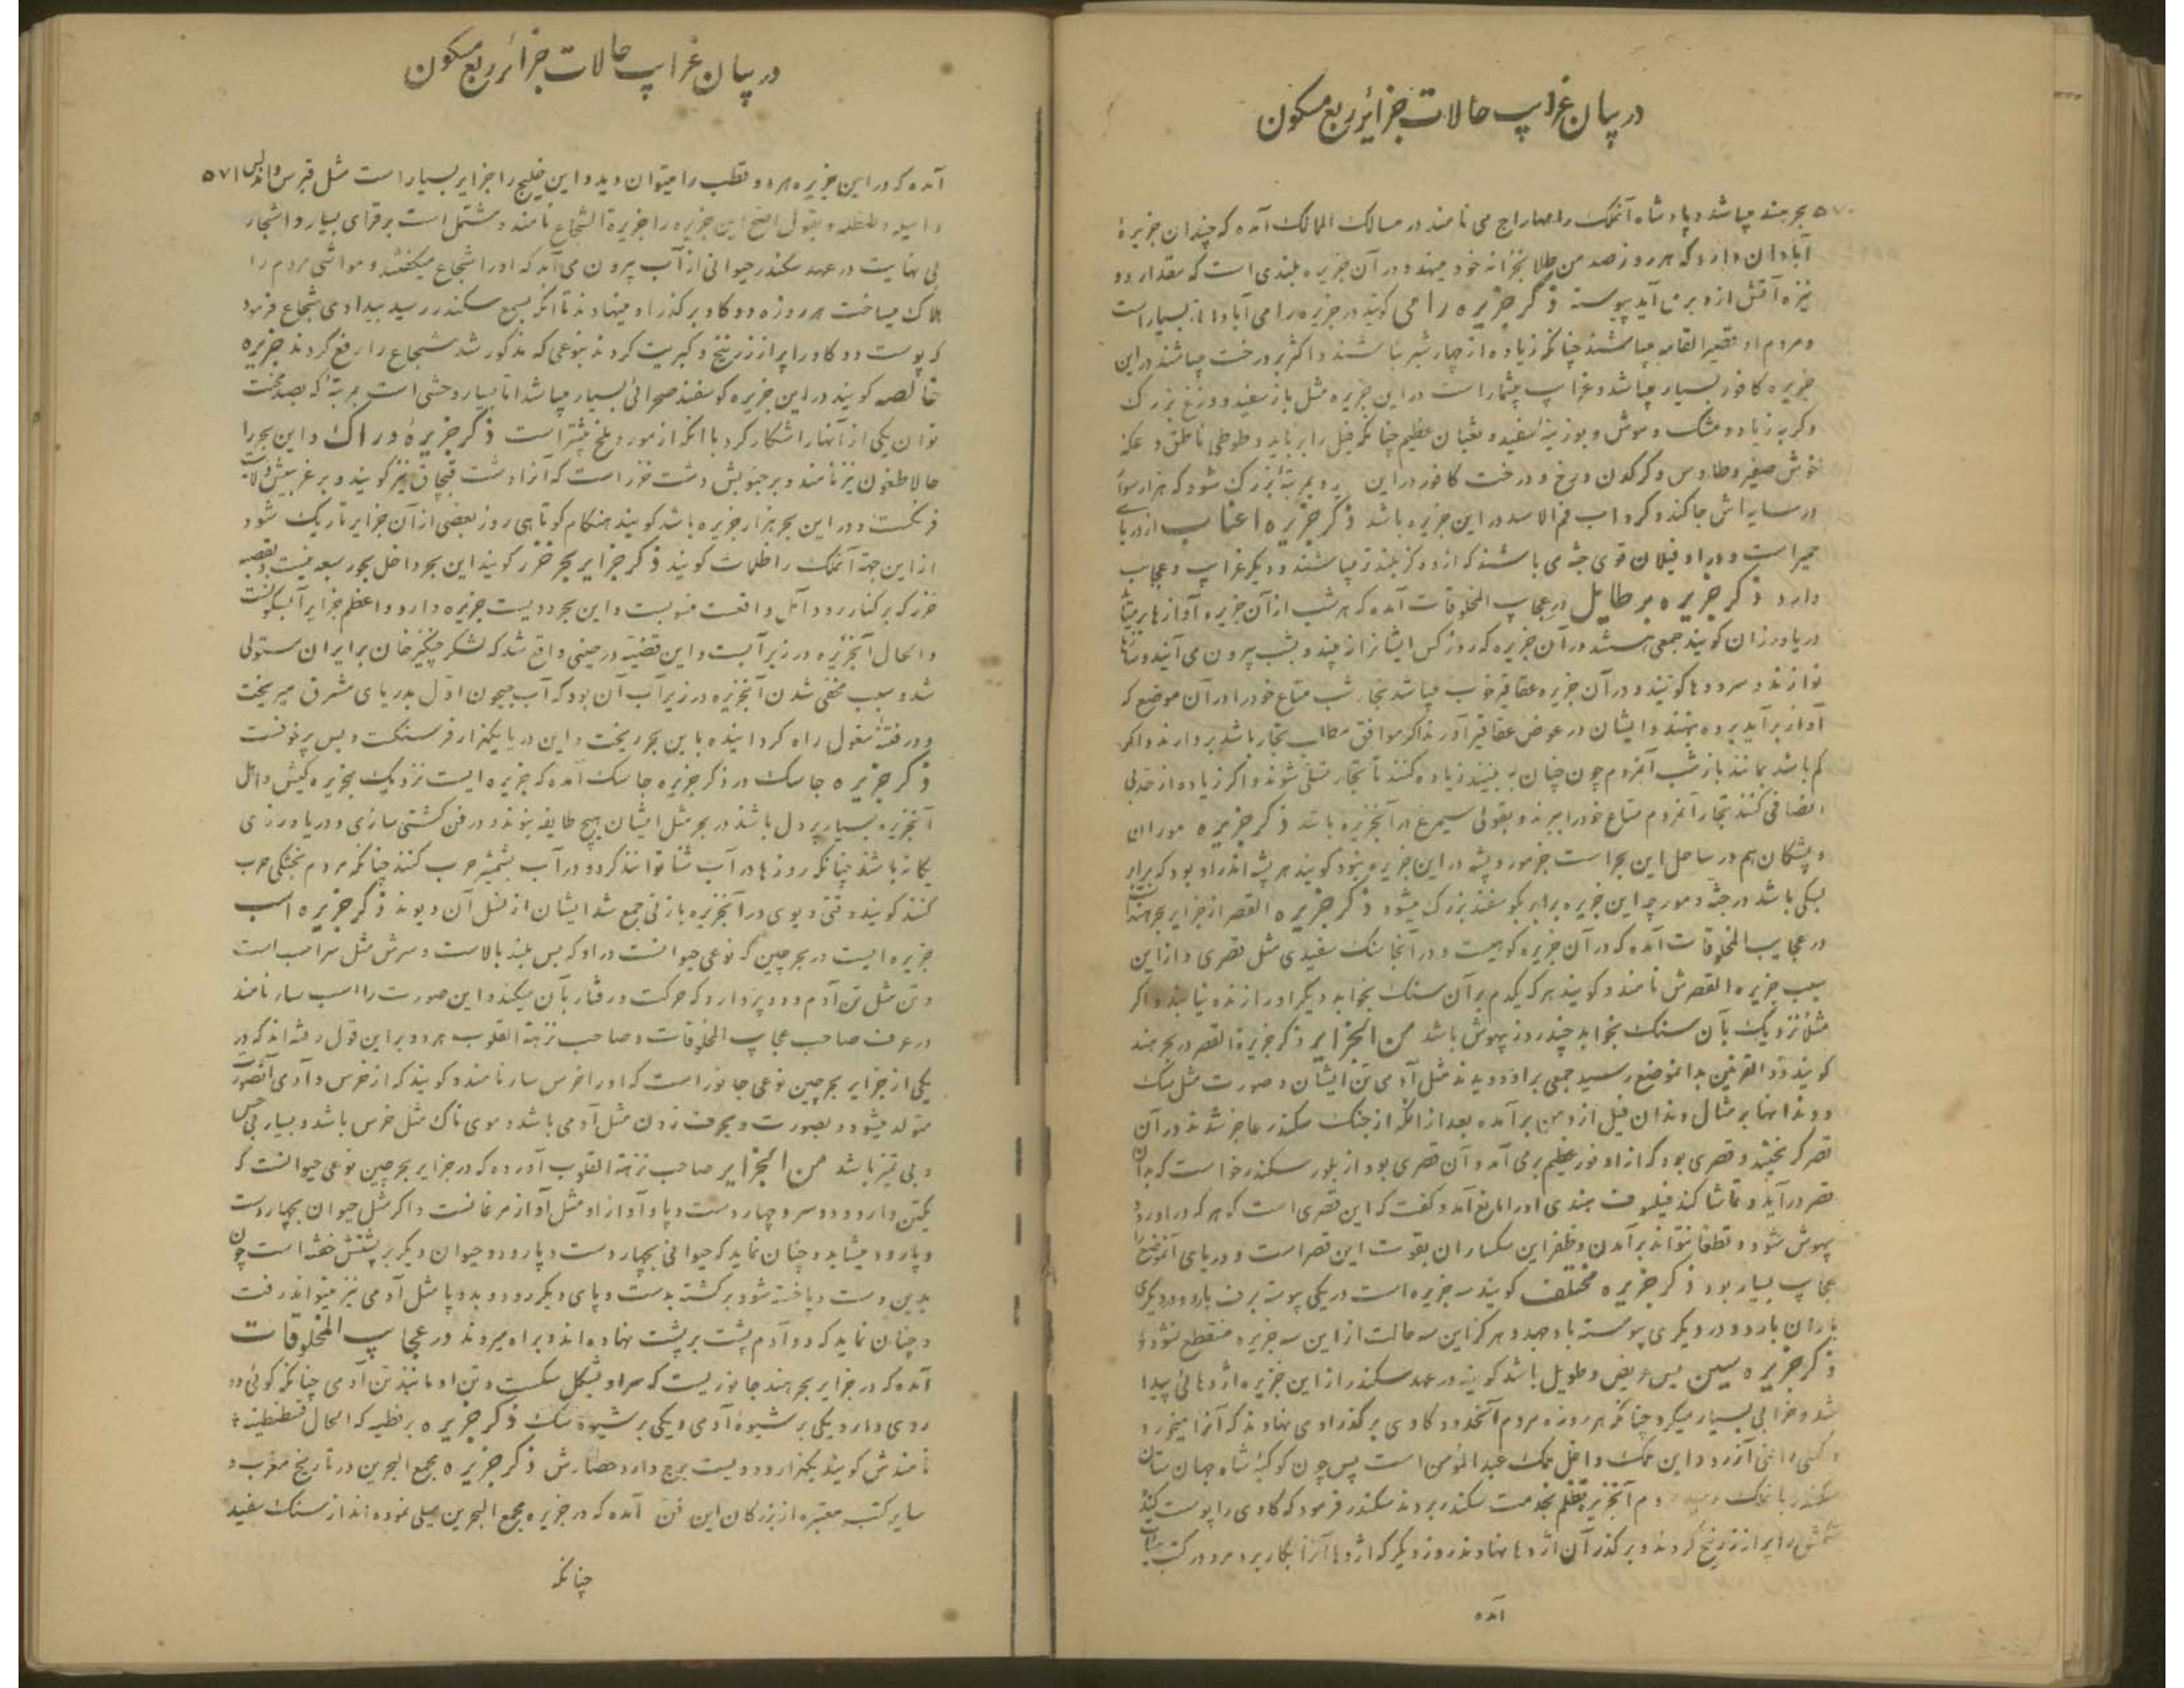 در بیان غرایب حالات جزائر ربع مسکون
۵۷۰ بحر هند میباشد و پادشاه آنملک را مهاراج می نامند در مسالک الممالک آمده که چندان جزیرهٔ
آبادان دارد که هر روز صد من طلا بخزانه خود مینهد و در آن جزیره بلندی است که مقدار دو
نیزه آتش ازو برمی آید پیوسته ذکر جزیره رامی کویند در جزیره رامی آبادانی بسیار است
و مردم او قصیر القامه میباشند چنانکه زیاده از چهار شبر نباشند و اکثر بر درخت میباشند در این
جزیره کافور بسیار میباشد و غرایب بیشمار است در این جزیره مثل باز سفید و وزغ بزرک
و کربه زباد و مشک و موش و بوزینه سفید و ثعبان عظیم چنانکه فیل را برباید و طوطی ناطق و عکه
خوش صفیر و طاوس و کرکدن و رخ و درخت کافور در این بمرتبه بزرک شود که هزار سوار
در سایه اش جا کند و کرداب فم الاسد در این جزیره باشد ذکر جزیره اعناب از دریا
حمیر است و در او فیلان قوی جثه می باشند که از دو کز بلندتر میباشند و دیگر غرایب و عجایب
دارد ذکر جزیره برطایل در عجایب المخلوقات آمده که هر شب از آن جزیره آوازها
دریاورزان کویند جمعی هستند در آن جزیره که روز کس ایشانرا نه بیند و بشب بیرون می آیند و سازها
نوازند و سرودها کویند و در آن جزیره عقاقیر خوب میباشد تجار شب متاع خود را در آن موضع که
آواز برآید برده بنهند و ایشان در عوض عقاقیر آورند اگر موافق مطالب تجار باشد بردارند و اکر
کم باشد بمانند باز شب آنمردم چون چنان به بینند زیاده کنند تا تجار تسلی شوند و اکر زیاده از حد بی
انصافی کنند تجار آنمردم متاع خود را ببرند و بقولی سیمرغ در آنجزیره باشد ذکر جزیره موران
و پشکان هم در ساحل این بحر است جز مور و پشه در این جزیره نبود کویند هر پشه اندر او بود که برابر
سکی باشد در جثه و مورچه این جزیره برابر بکوسفند بزرک میشود ذکر جزیره القصر از جزایر بحر هند است
در عجایب المخلوقات آمده که در آن جزیره کوهیست و در آنجا سنک سفیدی مثل قصری و از این
سبب جزیره القصرش نامند و کویند هر که یکدم بر آن سنک بخوابد دیکر او را زنده نیابند و اکر
مثلا نزدیک بآن سنک بخوابد چند روز بیهوش باشد من الجزایر ذکر جزیرة القصر در بحر هند
کویند ذو القرنین بدانموضع رسید جمعی بر او دویدند مثل آدمی تن ایشان و صورت مثل سک
و دندانها بر مثال دندان فیل از دهن برآمده بعد از انکه از جنک سکندر عاجز شدند در آن
قصر کریختند و قصری بود که از او نور عظیم برمی آمد و آن قصری بود از بلور سکندر خواست که بدان
قصر درآید و تماشا کند فیلسوف هندی او را مانع آمد و کفت که این قصری است که هر که در او رود
بیهوش شود و قطعا نتواند برآمدن و ظفر این سکساران بقوت این قصر است و در دریای آنموضع
عجایب بسیار بود ذکر جزیره مختلف کویند سه جزیره است در یکی پیوسته برف بارد و در دیکری
باران بارد و در دیکری پیوسته باد جهد و هرکز این سه حالت از این سه جزیره منقطع نشود
ذکر جزیره سین بس عریض و طویل باشد کویند در عهد سکندر از این جزیره اژدهائی پیدا
شد و خرابی بسیار میکرد چنانکه هر روزه مردم آنحدود کاوی بر کذر او می نهادند که آنرا میخورد
و کسی را نمی آزرد و این ملک داخل ملک عبد المؤمن است پس چون کوکبهٔ شاه جهان ستان
سکندر بآنملک رسید مردم آنجزیره تظلم بخدمت سکندر بردند سکندر فرمود که کاوی را پوست کنند
شکمش را پر از زرنیخ کردند و بر کذر آن اژدها نهادند روز دیکر که اژدها آنرا بکار برد مرد در کتب
آمده
در بیان غرایب حالات جزائر ربع مسکون
آمده که در این جزیره هر دو قطب را میتوان دید و این خلیج را جزایر بسیار است مثل قبرس و اندلس ۵۷۱
و بقول اصح این جزیره را جزیرة الشجاع نامند و مشتمل است بر قرای بسیار و اشجار
بی نهایت در عهد سکندر حیوانی از آب بیرون می آمد که او را شجاع میکفتند و مواشی مردم را
هلاک میساخت هر روزه دو کاو بر کذر او مینهادند تا انکه بسمع سکندر رسید بیدادی شجاع فرمود
که پوست دو کاو را پر از زرنیخ و کبریت کردند بنوعی که مذکور شد شجاع را رفع کردند جزیره
خالصه کویند در این جزیره کوسفند صحرائی بسیار میباشد اما بسیار وحشی است بمرتبهٔ که بصد محنت
توان یکی از آنها را شکار کرد با انکه از مور و ملخ بیشتر است ذکر جزیرهٔ دراک و این بحر را
حالا طغون نیز نامند و بر جنوبش دشت خزر است که آنرا دشت قبچاق نیز کویند و بر غربیش ولایت
فرنکست و در این بحر هزار جزیره باشد کویند هنکام کوتاهی روز بعضی از آن جزایر تاریک شود
از این جهة آنملک را ظلمات کویند ذکر جزایر بحر خزر کویند این بحر داخل بحور سبعه نیست و بقصبه
خزر که بر کنار رود آتل واقعست منسوبست و این بحر دویست جزیره دارد و اعظم جزایر آبسکونست
و الحال آنجزیره در زیر آبست و این قضیه در حینی واقع شد که لشکر چنکیز خان بر ایران مستولی
شد و سبب مخفی شدن آنجزیره در زیر آب آن بود که آب جیحون اول بدریای مشرق میریخت
و در فتنهٔ مغول راه کردانیده باین بحر ریخت و این دریا یکهزار فرسنکست و بس پر خوفست
ذکر جزیره جاسک در ذکر جزیره جاسک آمده که جزیره ایست نزدیک بجزیره کیش و اهل
آنجزیره بسیار پر دل باشند در بحر مثل ایشان هیچ طایفه نبوند و در فن کشتی سازی و دریاورزی
یکانه باشند چنانکه روزها در آب شنا توانند کرد و در آب بشمشیر حرب کنند چنانکه مردم بخشکی حرب
کنند کویند وقتی دیوی در آنجزیره با زنی جمع شد ایشان از نسل آن دیوند ذکر جزیره اسب
جزیره ایست در بحر چین که نوعی حیوانست در او که بس بلند بالاست و سرش مثل سر اسب است
و تن مثل تن آدم و دو پر دارد که حرکت و رفتار بآن میکند و این صورت را اسب سار نامند
در عرف صاحب عجایب المخلوقات و صاحب نزهة القلوب هر دو بر این قول رفته اند که در
یکی از جزایر بحر چین نوعی جانور است که او را خرس سار نامند و کویند که از خرس و آدمی آنصورت
متولد میشود و بصورت و بحرف زدن مثل آدمی باشد و موی ناک مثل خرس باشد و بسیار بی حس
و بی تمیز باشد من الجزایر صاحب نزهة القلوب آورده که در جزایر بحر چین نوعی حیوانست که
یکتن دارد و دو سر و چهار دست و پا و آواز او مثل آواز مرغانست و اکر مثل حیوان بچهار دست
و پا رود میشاید و چنان نماید که حیوانی بچهار دست و پا رود و حیوان دیکر بر پشتش خفته است چون
بدین دست و پا خسته شود برکشته بدست و پای دیکر رود و بدو پا مثل آدمی نیز میتواند رفت
و چنان نماید که دو آدم پشت بر پشت نهاده اند و براه میروند در عجایب المخلوقات
آمده که در جزایر بحر هند جانوریست که سر او بشکل سکست و تن او مانند تن آدمی چنانکه کوئی دو
روی دارد یکی بر شیوهٔ آدمی و یکی بر شیوهٔ سک ذکر جزیره برنطیه که الحال قسطنطنیه
نامندش کویند یکهزار و دویست برج دارد حصارش ذکر جزیره مجمع البحرین در تاریخ مغرب و
سایر کتب معتبره از بزرکان این فن آمده که در جزیره مجمع البحرین میلی نموده اند از سنک سفید
چنانکه